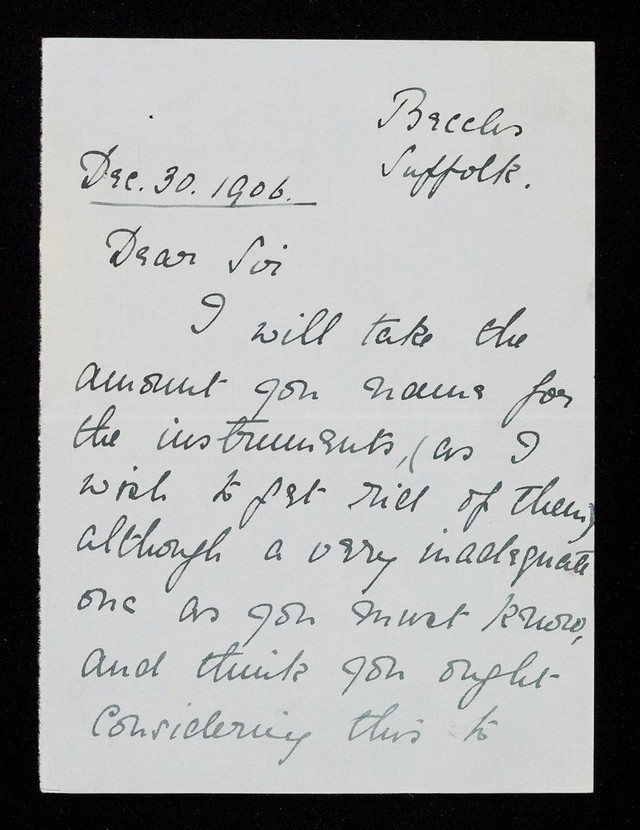 Beccles
Suffolk.
Dec. 30. 1906.
Dear Sir
I will take the
amount you name for
the instruments, (as I
wish to get rid of them)
although a very inadequate
one as you must know,
and think you ought
considering this to